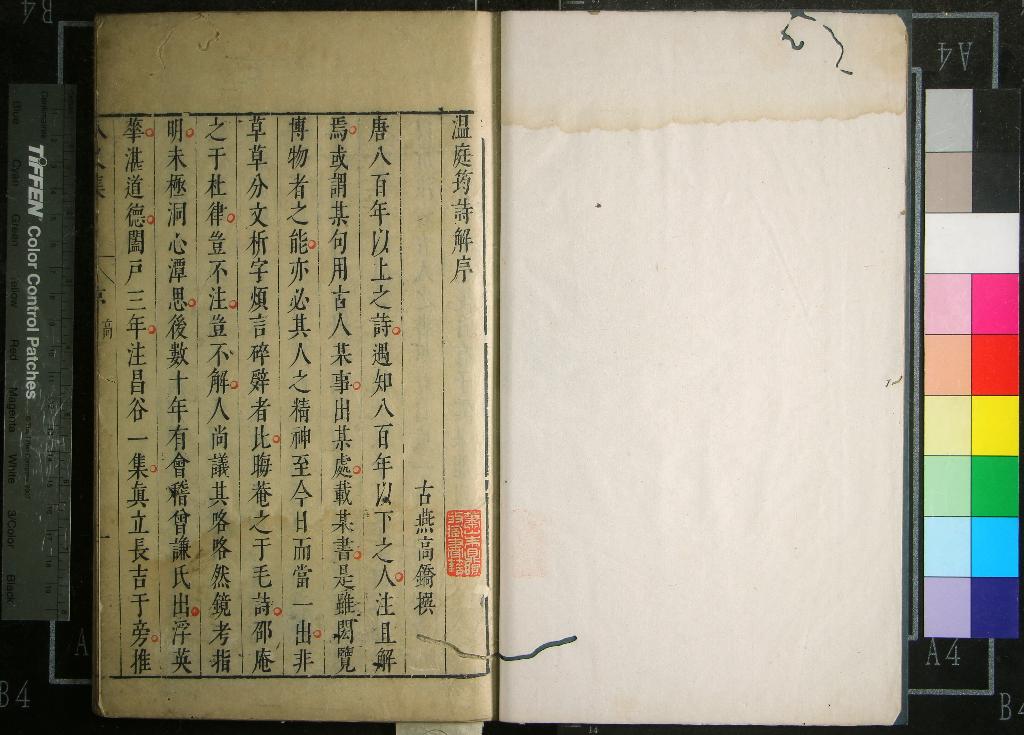 温庭筠詩解序
古燕高鐈撰
唐八百年以上之詩遇知八百年以下之人注且解
焉或謂某句用古人某事出某處載某書是雖閎覽
博物者之能亦必其人之精神至今日而當一出非
草草分文析字煩言碎辭者比晦菴之于毛詩邵庵
之于杜律豈不注豈不解人尚議其略略然鏡考指
明未極洞心潭思後數十年有會稽曾謙氏出浮英
華湛道德闔戸三年注昌谷一集眞立長吉于旁推
序
高
一
TIFFEN Color Control Patches
Blue
Cyan
Green
Yellow
Red
Magenta
White
3/Color
Black
A4
A4
B4
B4
B4
A